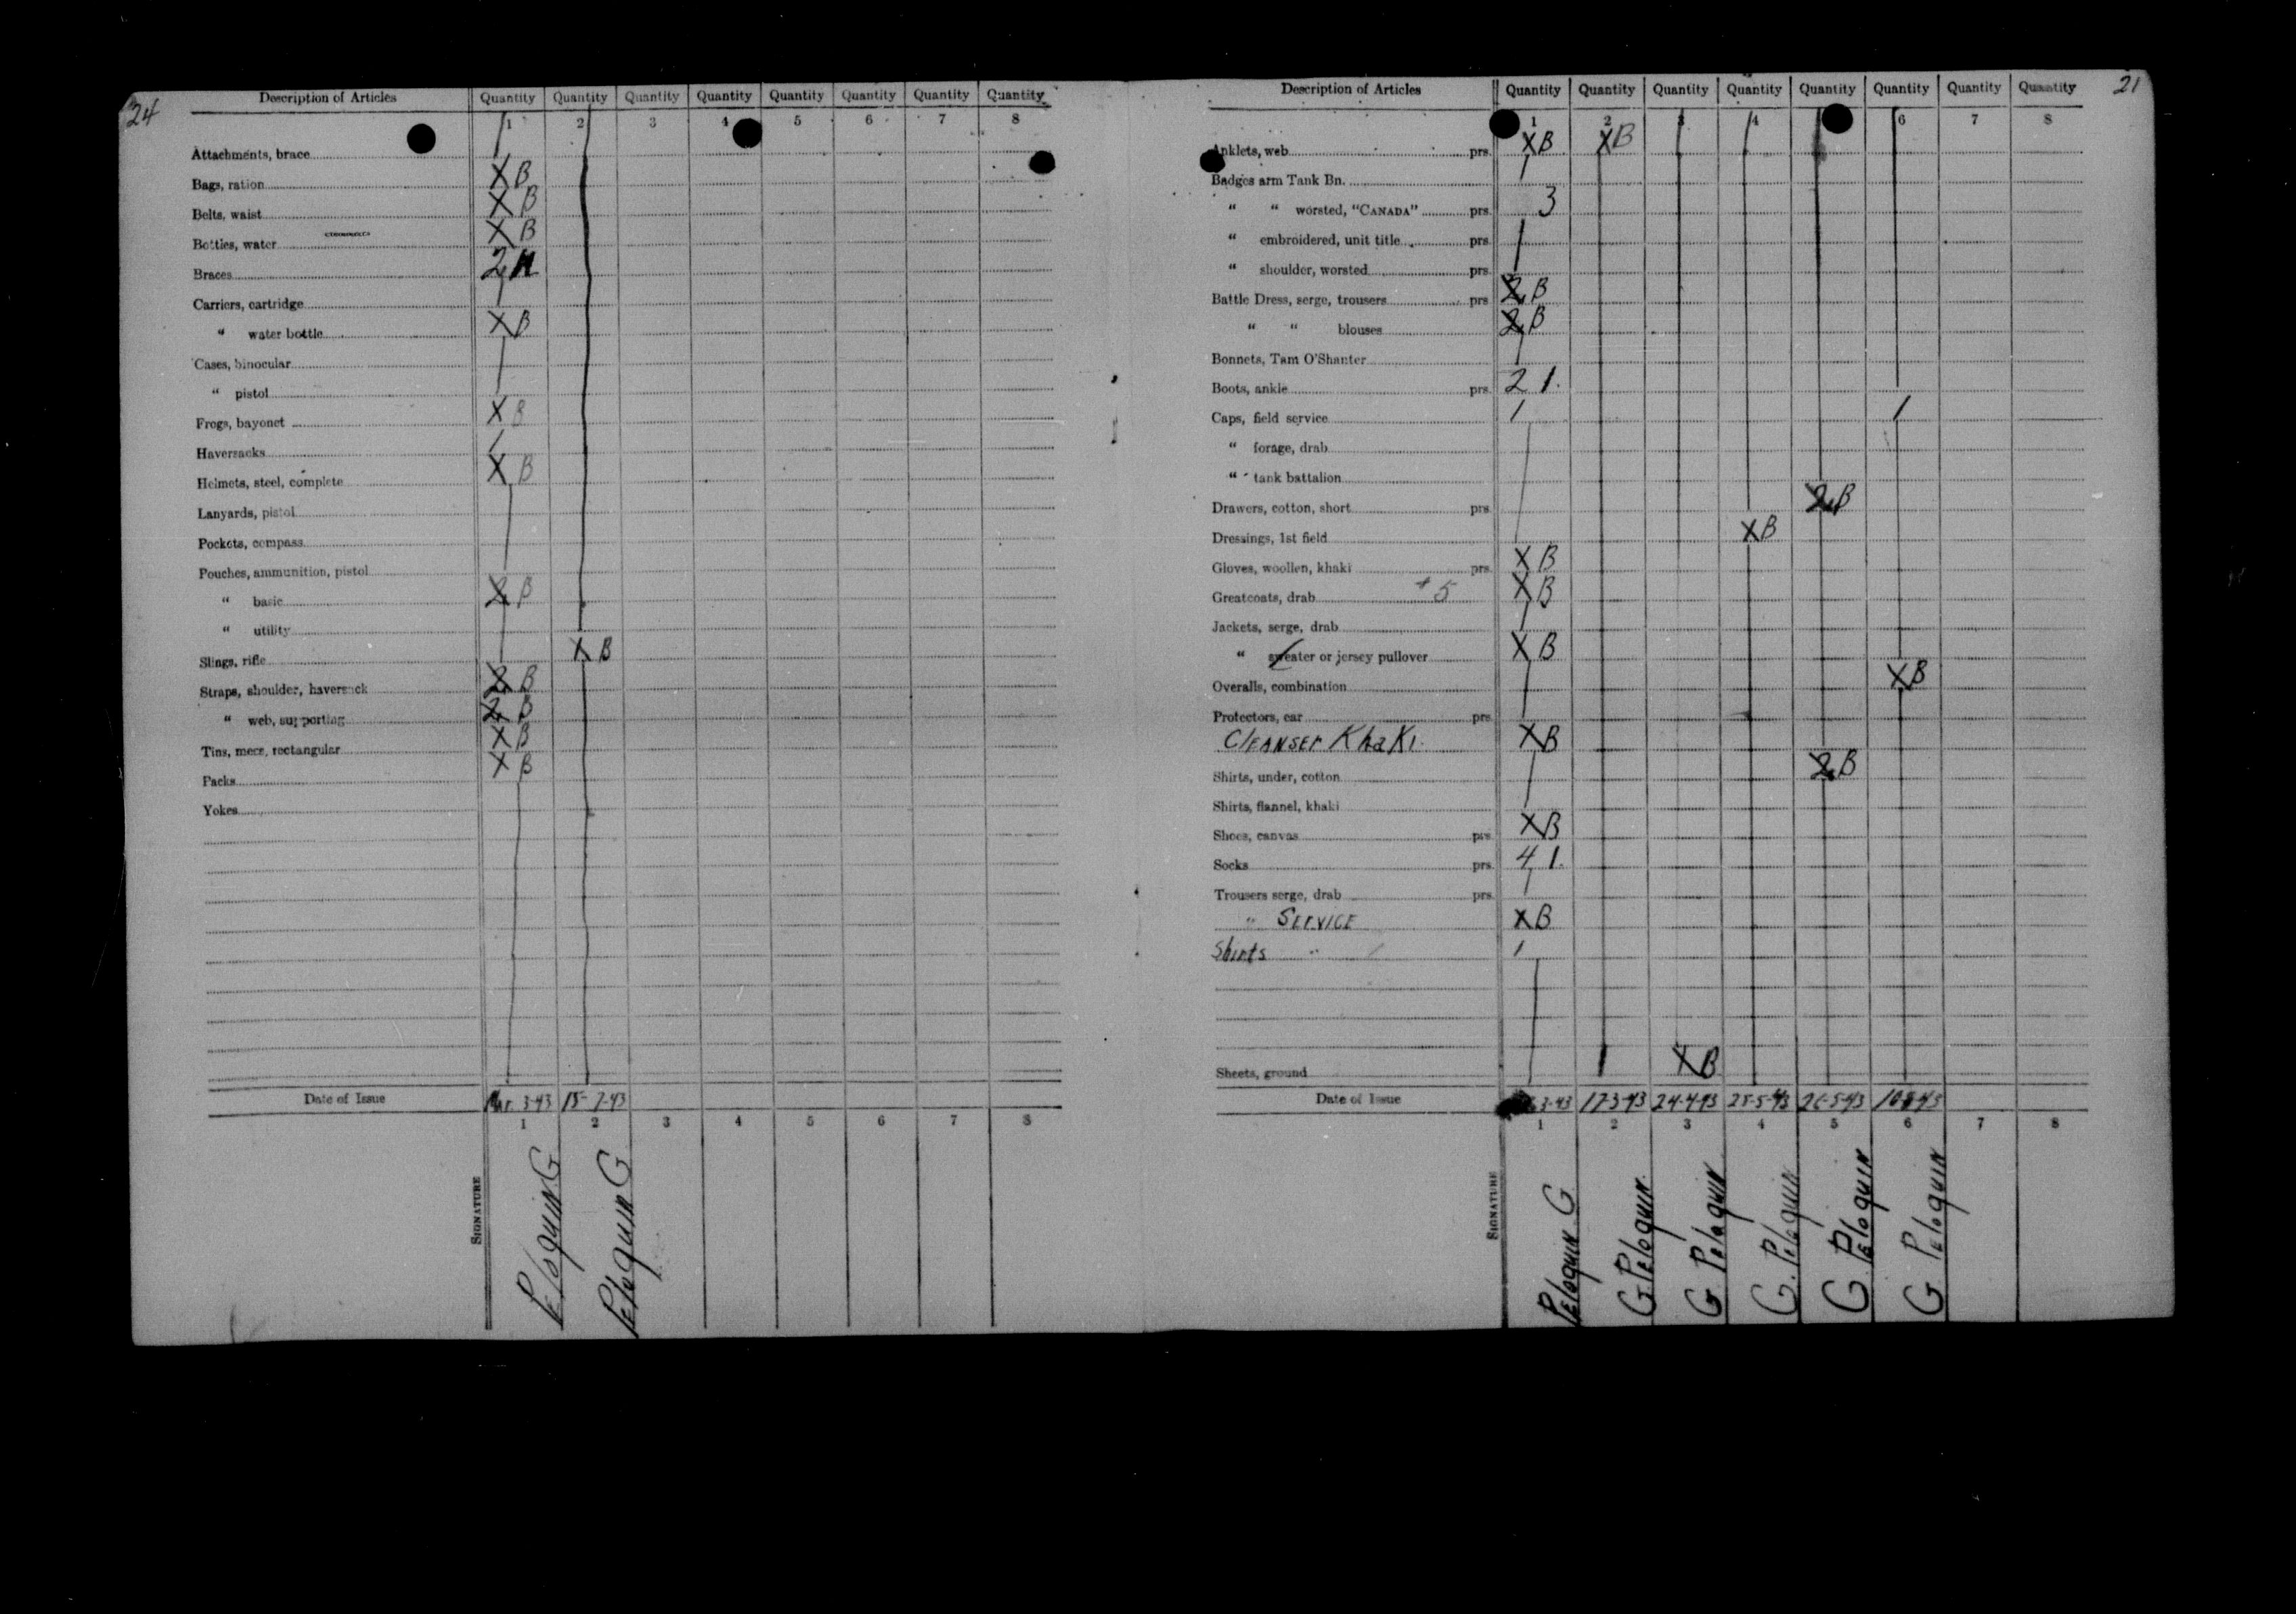 24
Description of Articles Quantity Quantity Quantity Quantity Quantity Quantity Quantity Quantity
1 2 3 4 5 6 7 8
Attachments, brace
Bags, ration X B
Belts, waist X B
Bottles, water X B
Braces 2
Carriers, cartridge
" water bottle X B
Cases, binocular
" pistol
Frogs, bayonet X B
Haversacks 1
Helmets, steel, complete X B
Lanyards, pistol
Pockets, compass
Pouches, ammunition, pistol
" basic 2 B
" utility
Slings, rifle X B
Straps, shoulder, haversack 2 B
" web, supporting 2 B
Tins, mess, rectangular X B
Packs X B
Yokes
Date of Issue 3-43 15-7-43
1 2 3 4 5 6 7 8
SIGNATURE Peloquin G Peloquin G
21
Description of Articles Quantity Quantity Quantity Quantity Quantity Quantity Quantity Quantity
1 2 4 6 7 8
Anklets, web prs. XB XB
Badges arm Tank Bn.
" " worsted, "CANADA" prs. 3
" embroidered, unit title prs.
" shoulder, worsted prs.
Battle Dress, serge, trousers prs. 2 B
" " blouses 2 B
Bonnets, Tam O'Shanter
Boots, ankle prs. 2 1.
Caps, field service 1 1
" forage, drab
" tank battalion
Drawers, cotton, short prs. 2 B
Dressings, 1st field XB
Gloves, woollen, khaki prs. X B
Greatcoats, drab 5 X B
Jackets, serge, drab
" sweater or jersey pullover X B
Overalls, combination XB
Protectors, ear prs.
Cleanser Khaki XB
Shirts, under, cotton 2 B
Shirts, flannel, khaki
Shoes, canvas prs. XB
Socks prs. 4 1.
Trousers serge, drab prs.
" SERVICE XB
Shirts " 1
Sheets, ground XB
Date of Issue 3-43 17-3-43 24-4-43 25-5-43 26-5-43
1 2 3 4 5 6 7 8
SIGNATURE Peloquin G G Peloquin G Peloquin G. Peloquin G Peloquin G Peloquin